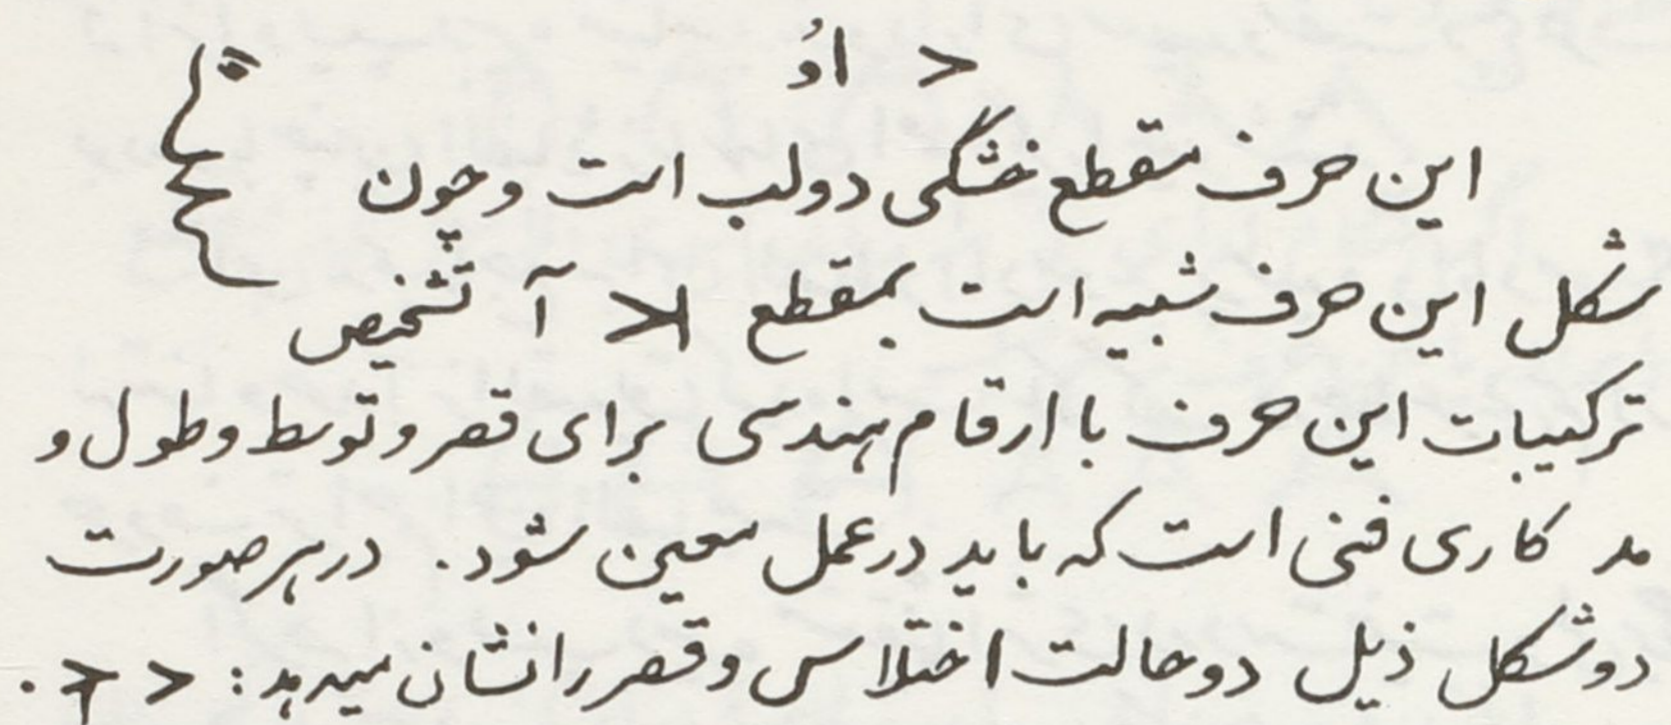 < اوُ
این حرف مقطع خشگی دولب است و چون
شکل این حرف شبیه است بمقطع <| آ تشخیص
ترکیبات این حرف با ارقام هندسی برای قصر و توسط و طول و
مد کاری فنی است که باید در عمل معین شود. در هر صورت
دو شکل ذیل دو حالت اختلاس و قصر را نشان میدهد: < <.